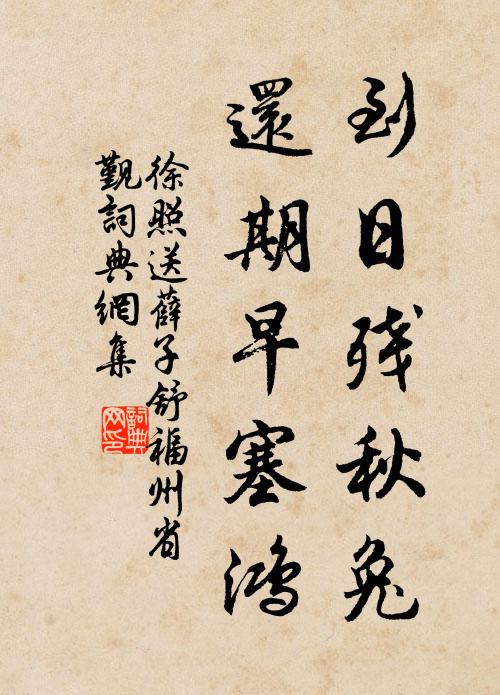 到日残秋兔
還期早塞鴻
徐照送薛子舒福州省
覲詞典網集
詞典网印